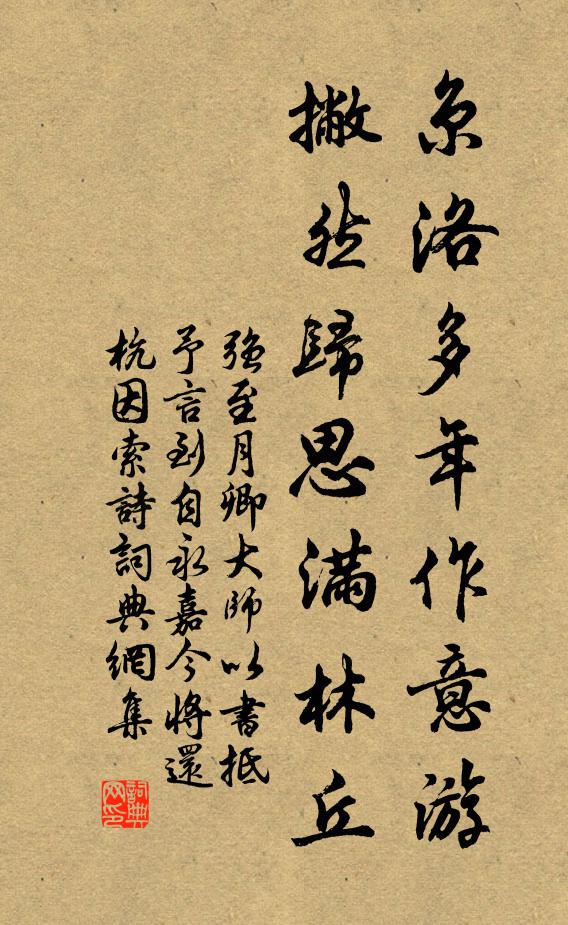 京洛多年作意游
撇然歸思滿林丘
強至月卿大師以書抵
予言到自永嘉今將還
杭因索詩詞典網集
詞典
网印